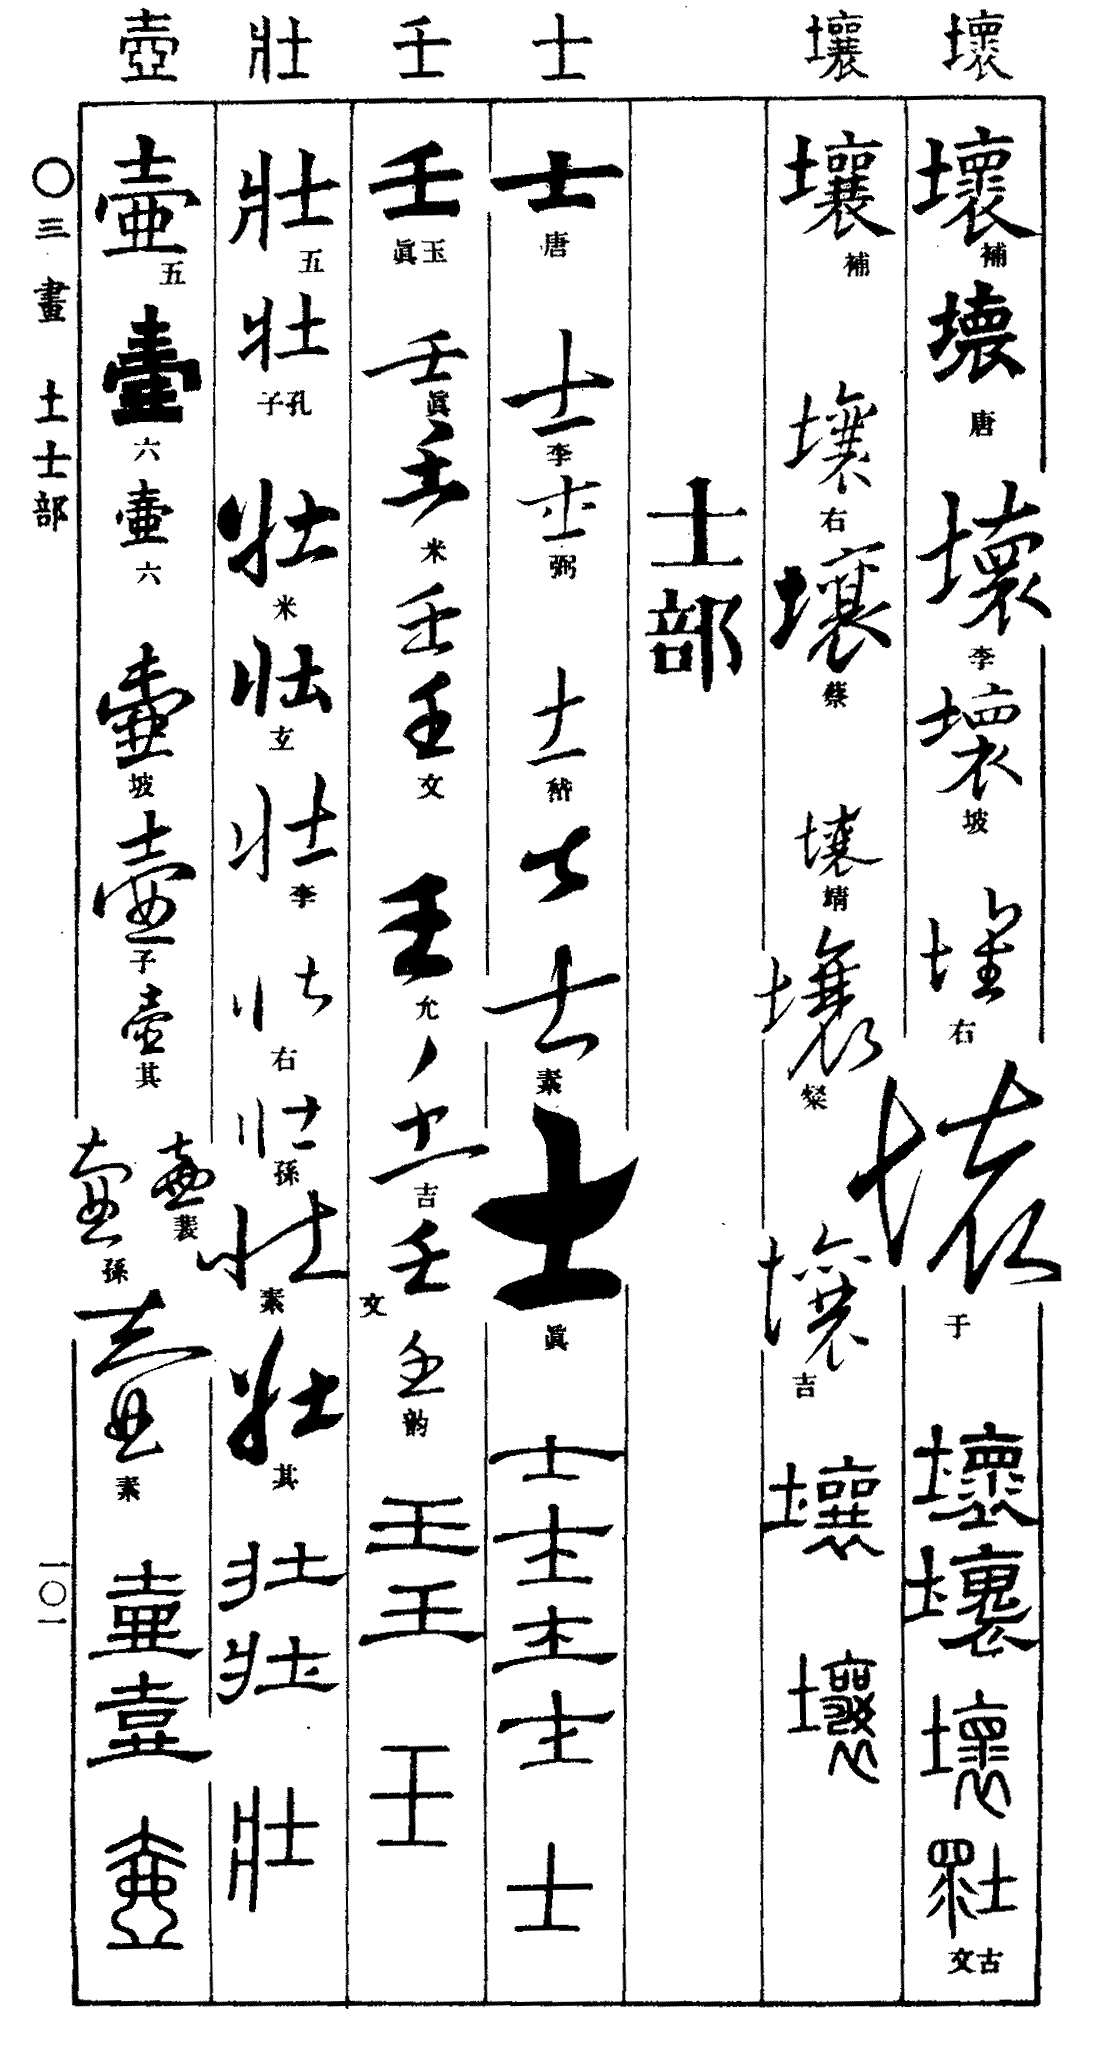 壞
壤
士
壬
壯
壺
壞 補
壞 唐
壞 李
壞 坡
壞 右
壞 于
壞
壞
壞
壞 古文
壤 補
壤 右
壤 蔡
壤 靖
壤 粲
壤 吉
壤
壤
士部
士 唐
士 李
士 弼
士 嵇
士
士 素
士 眞
士
士
士
士
士
壬 玉眞
壬 眞
壬 米
壬
壬 文
壬 允
壬 吉
壬 文
壬 韵
壬
壬
壬
壯 五
壯 孔子
壯 米
壯 玄
壯 李
壯 右
壯 孫
壯 素
壯 其
壯
壯
壯
壺 五
壺 六
壺 六
壺 坡
壺 子
壺 其
壺 裴
壺 孫
壺 素
壺
壺
壺
〇三畫 土士部
一〇一